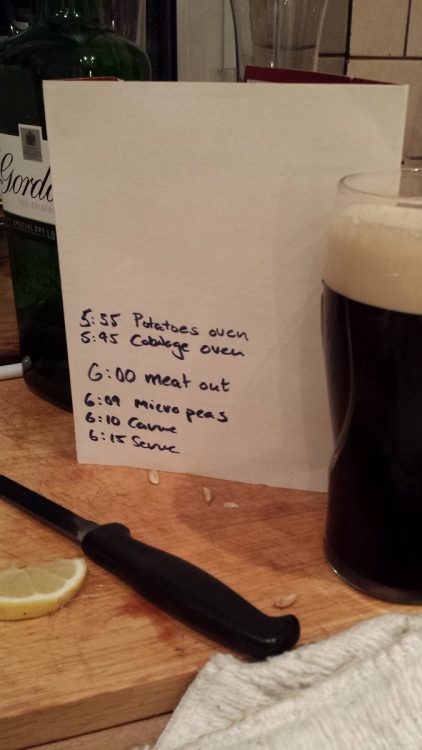 Gordo
THE ORIGIN
SPECIAL DRY LO
5:35 Potatoes oven
5:45 Cabbage oven
6:00 meat out
6:09 Micro peas
6:10 Carve
6:15 Serve